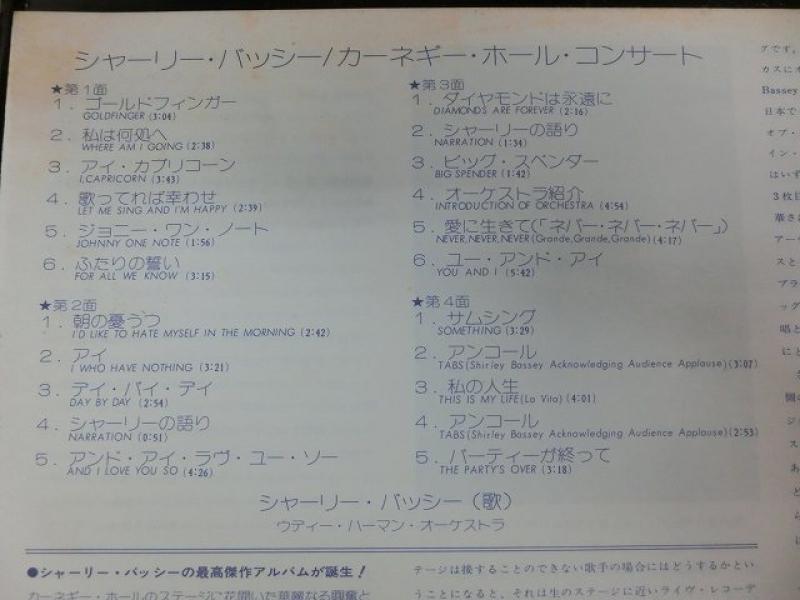 シャーリー・バッシー/カーネギー・ホール・コンサート
★第1面
1. ゴールドフィンガー
GOLDFINGER (3:04)
2. 私は何処へ
WHERE AM I GOING (2:38)
3. アイ・カプリコーン
I,CAPRICORN (3:43)
4. 歌ってれば幸わせ
LET ME SING AND I'M HAPPY (2:39)
5. ジョニー・ワン・ノート
JOHNNY ONE NOTE (1:56)
6. ふたりの誓い
FOR ALL WE KNOW (3:15)
★第2面
1. 朝の憂うつ
I'D LIKE TO HATE MYSELF IN THE MORNING (2:42)
2. アイ
I WHO HAVE NOTHING (3:21)
3. デイ・バイ・デイ
DAY BY DAY (2:54)
4. シャーリーの語り
NARRATION (0:51)
5. アンド・アイ・ラヴ・ユー・ソー
AND I LOVE YOU SO (4:26)
★第3面
1. ダイヤモンドは永遠に
DIAMONDS ARE FOREVER (2:16)
2. シャーリーの語り
NARRATION (1:34)
3. ビッグ・スペンダー
BIG SPENDER (1:42)
4. オーケストラ紹介
INTRODUCTION OF ORCHESTRA (4:54)
5. 愛に生きて(「ネバー・ネバー・ネバー」)
NEVER,NEVER,NEVER (Grande,Grande,Grande) (4:17)
6. ユー・アンド・アイ
YOU AND I (5:42)
★第4面
1. サムシング
SOMETHING (3:29)
2. アンコール
TABS(Shirley Bassey Acknowledging Audience Applause)(3:07)
3. 私の人生
THIS IS MY LIFE(La Vita) (4:01)
4. アンコール
TABS(Shirley Bassey Acknowledging Audience Applause)(2:53)
5. パーティーが終って
THE PARTY'S OVER (3:18)
シャーリー・バッシー(歌)
ウディー・ハーマン・オーケストラ
●シャーリー・バッシーの最高傑作アルバムが誕生!
カーネギー・ホールのステージに花開いた華麗なる興奮と
テージは接することのできない歌手の場合にはどうするかとい
うことになると、それは生のステージに近いライヴ・レコーデ
グです。
カスにオ
Bassey
日本で
オブ・
イン・
はいず
3枚目
華さ
アー
スと
プラ
ッグ
唱と
にと